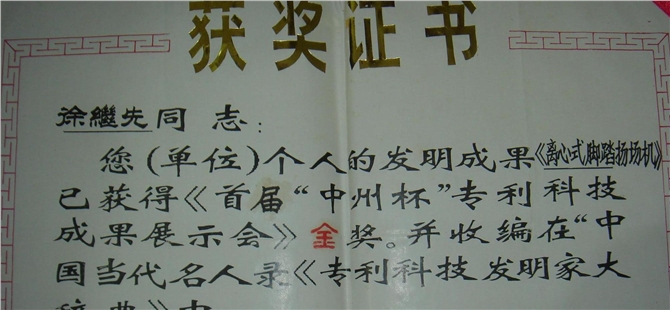 获奖证书
徐繼先同志：
您(单位)个人的发明成果《离心式脚踏扬场机》
已获得《首届“中州杯”专利科技
成果展示会》金奖。并收编在“中
国当代名人录《专利科技发明家大
辞典》中